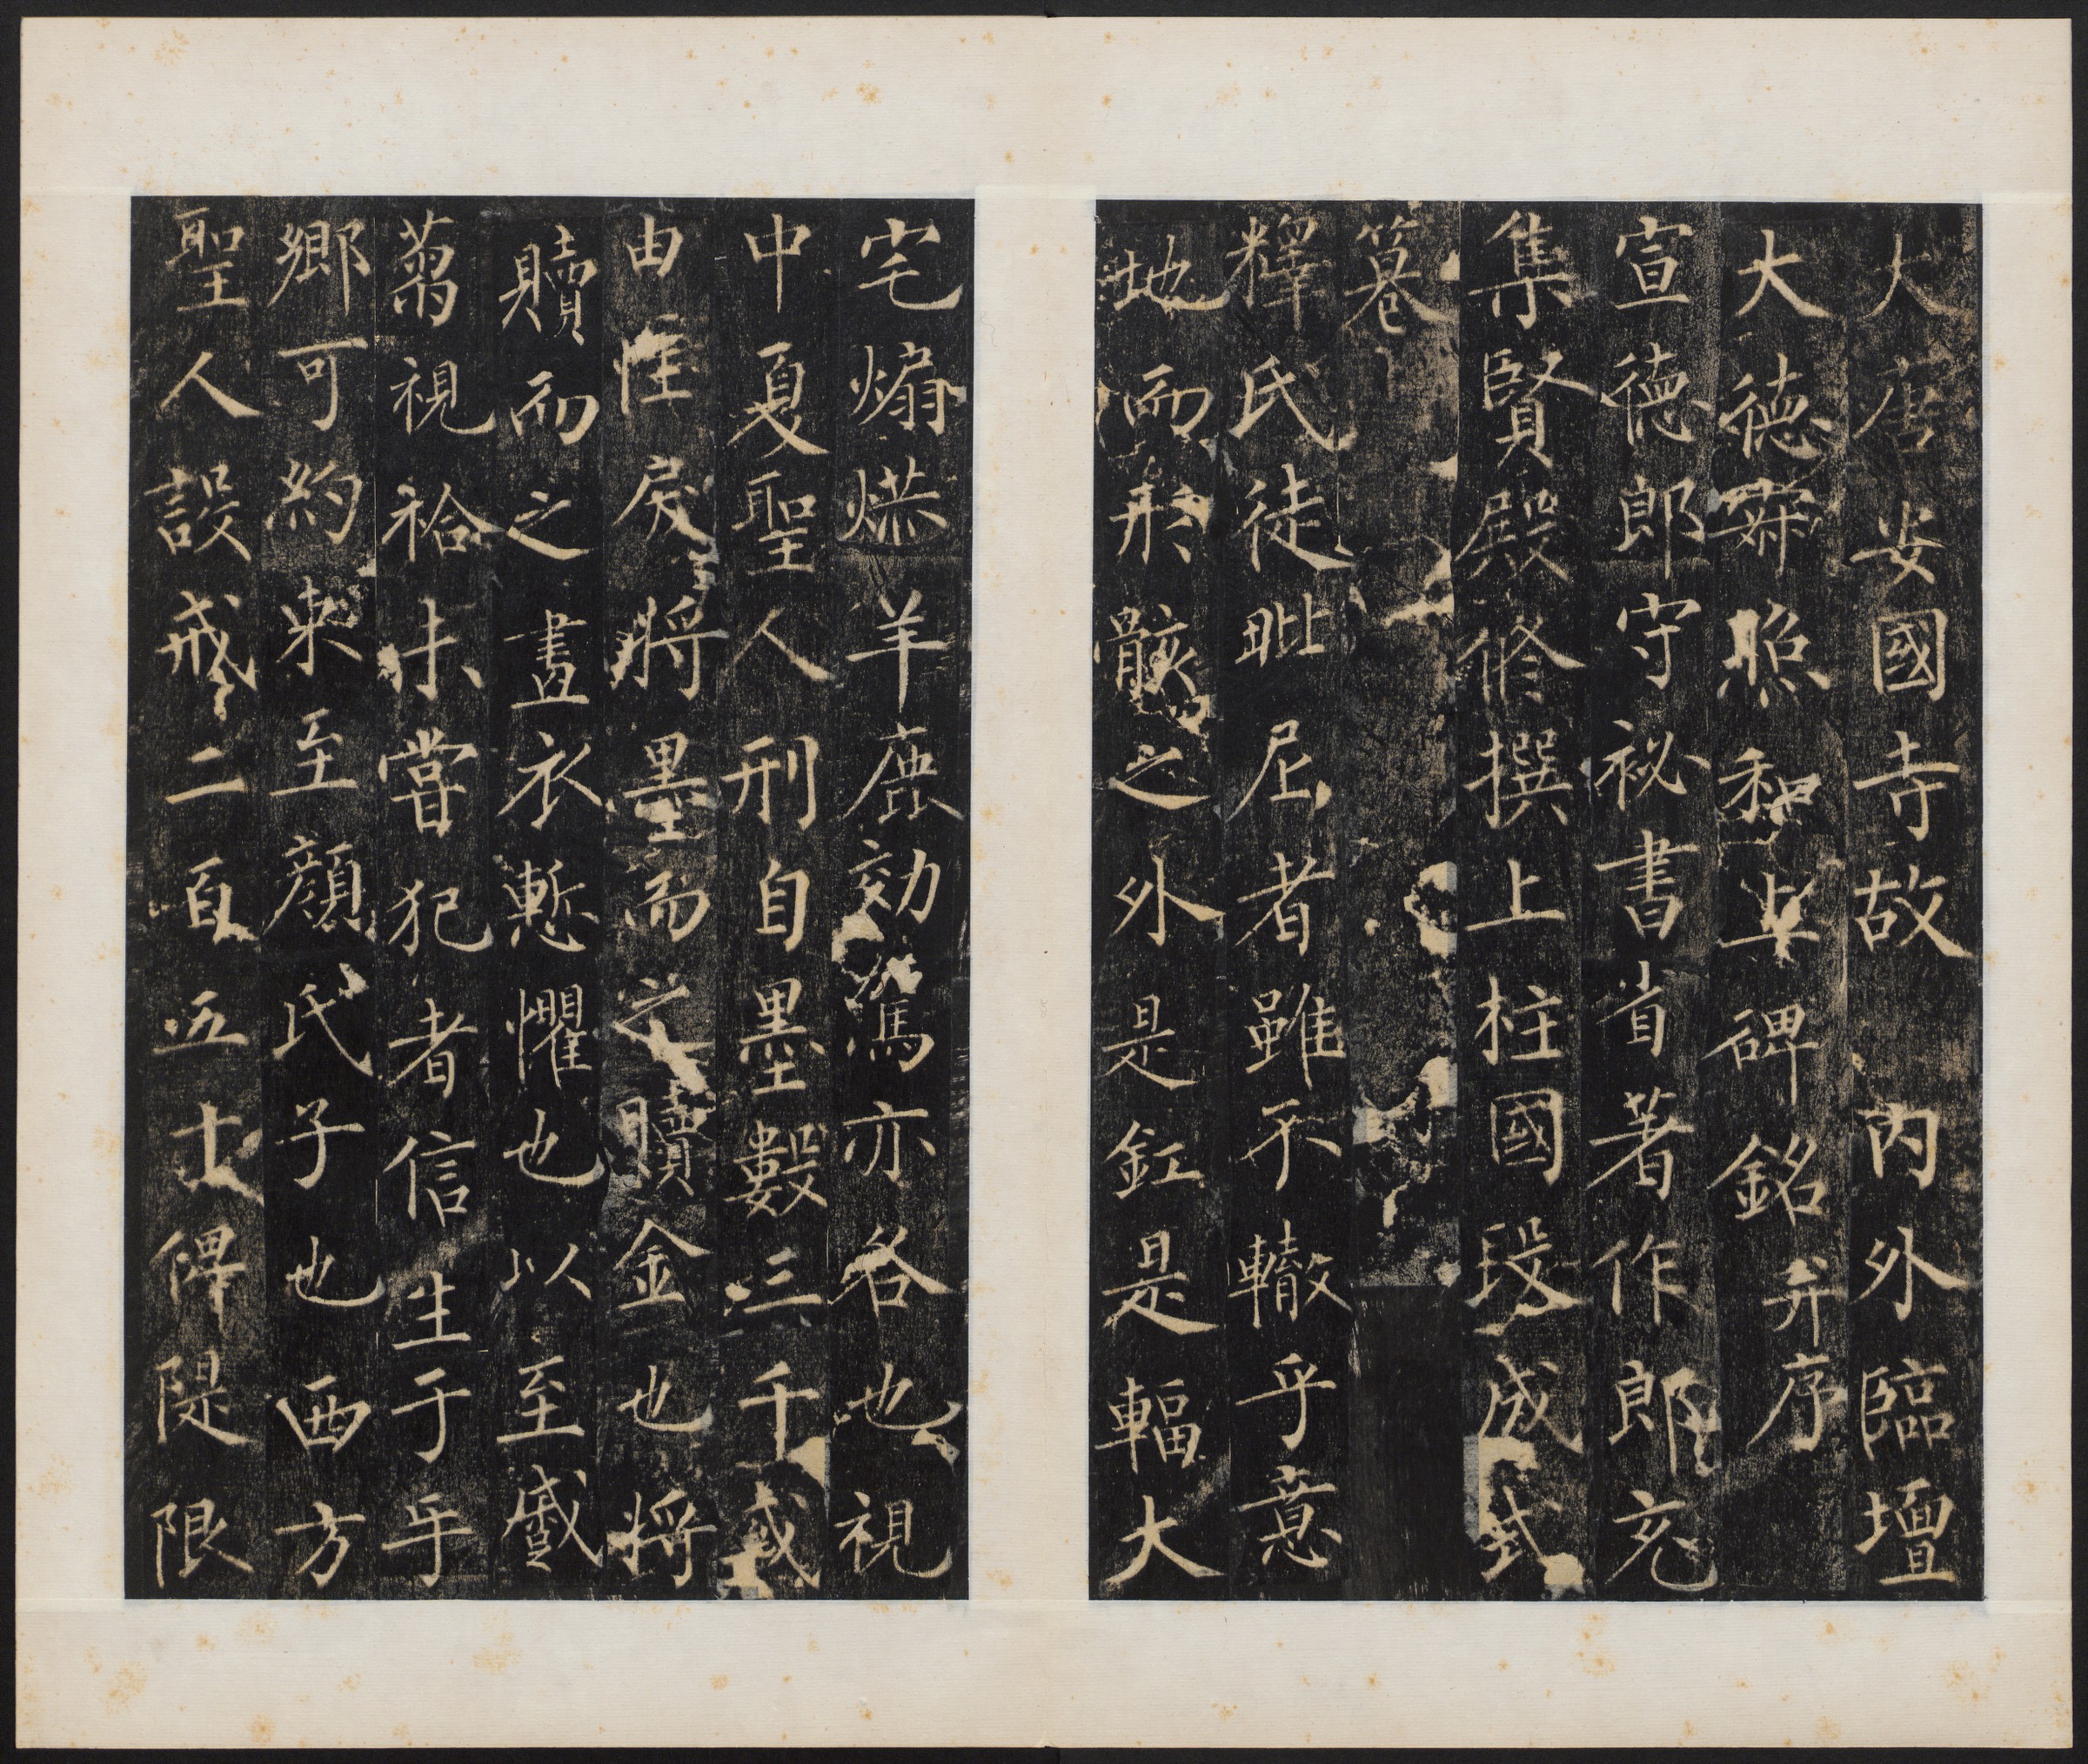 大唐安國寺故 內外臨壇
大德寂照和上碑銘并序
宣德郎守祕書省著作郎充
集賢殿修撰上柱國段成式
篹
釋氏徒毗尼者雖不轍乎意
地而形骸之外是釭是輻大
宅煽㷫羊鹿効駕亦各也視
中夏聖人刑自墨數三千或
由性戾將墨而之贖金也將
贖而之畫衣慙懼也以至盛
蒭視祫未嘗犯者信生于乎
鄉可約束至顏氏子也西方
聖人設戒二百五十俾隄限